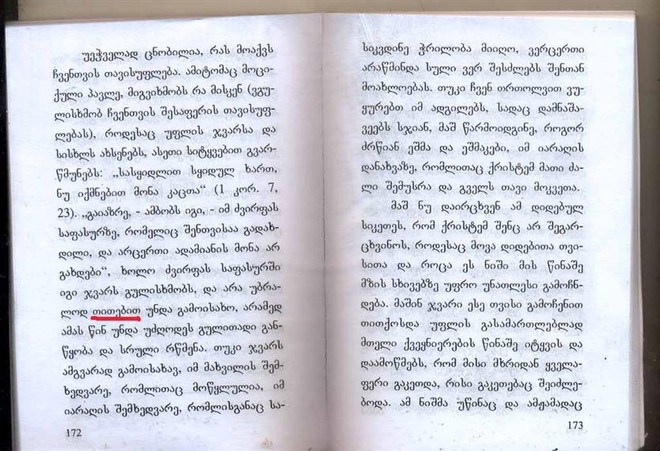 უეჭველად ცნობილია, რას მოაქვს
ჩვენთვის თავისუფლება. ამიტომაც მოცი-
ქული პავლე, მიგვითხობს რა მისკენ (ვგუ-
ლისხმობ ჩვენთვის შესაფერის თავისუფ-
ლებას), როდესაც უფლის ჯვარსა და
სისხლს ახსენებს, ასეთი სიტყვებით გვარ-
წმუნებს: „სასყიდლით სყიდულ ხართ,
ნუ იქმნებით მონა კაცთა“ (1 კორ. 7,
23). „გაიაზრე, - ამბობს იგი, - იმ ძვირფას
საფასურზე, რომელიც შენთვისაა გადახ-
დილი, და არცერთი ადამიანის მონა არ
გახდები“, ხოლო ძვირფას საფასურში
იგი ჯვარს გულისხმობს, და არა უბრა-
ლოდ თითებით უნდა გამოისახო, არამედ
ამას წინ უნდა უძღოდეს გულითადი გან-
წყობა და სრული რწმენა. თუკი ჯვარს
ამგვარად გამოისახავ, იმ მახვილის შემ-
ხედვარე, რომლითაც მოწყლულია, იმ
იარაღის შემხედვარე, რომლისგანაც სა-
172
სიკვდინე ჭრილობა მიიღო, ვერცერთი
არაწმინდა სული ვერ შესძლებს შენთან
მოახლოებას. თუკი ჩვენ თრთოლვით ვუ-
ყურებთ იმ ადგილებს, სადაც დამნაშა-
ვეებს სჯიან, მაშ წარმოიდგინე, როგორ
ძრწიან ეშმა და ეშმაკები, იმ იარაღის
დანახვაზე, რომლითაც ქრისტემ მათი ძა-
ლი შემუსრა და გველს თავი მოკვეთა.
მაშ ნუ დაირცხვენ ამ დიდებულ
სიკეთეს, რომ ქრისტემ შენც არ შეგარ-
ცხვინოს, როდესაც მოვა დიდებითა თვი-
სითა და როცა ეს ნიში მის წინაშე
მზის სხივებზე უფრო უნათლესი გამოჩნ-
დება. მაშინ ჯვარი ესე თვისი გამოჩენით
თითქოსდა უფლის გასამართლებლად
მთელი ქვეყნიერების წინაშე იტყვის და
დაამოწმებს, რომ მისი მხრიდან ყველა-
ფერი გაკეთდა, რისი გაკეთებაც შეიძლე-
ბოდა. ამ ნიშმა უწინაც და ამჟამადაც
173